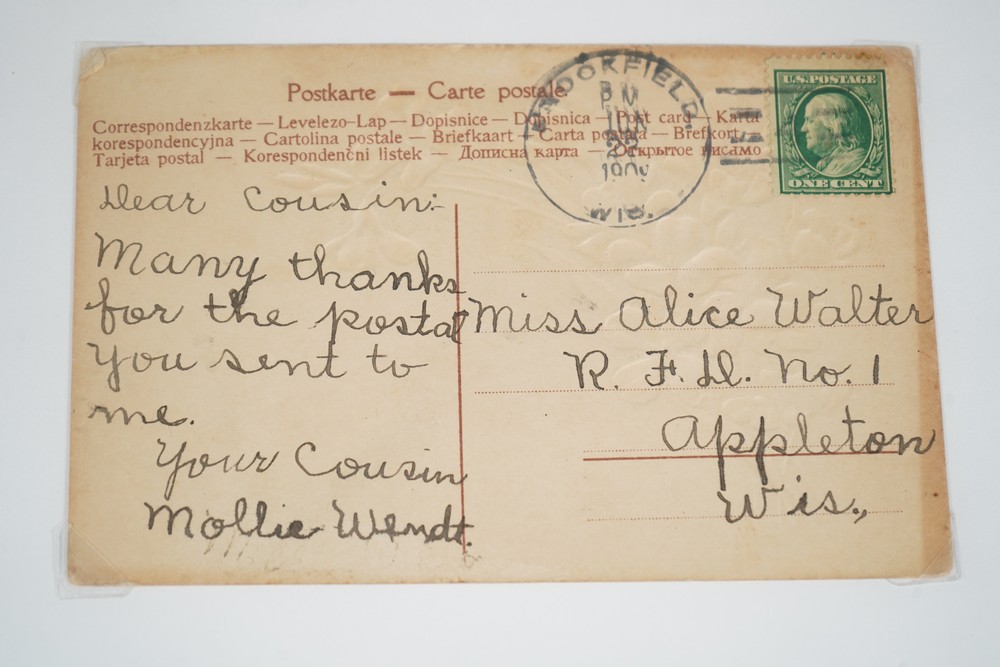 Postkarte — Carte postale.
Correspondenzkarte — Levelezo-Lap — Dopisnice — Dopisnica — Post card — Karta
korespondencyjna — Cartolina postale — Briefkaart — Carta postala — Brefkort —
Tarjeta postal — Korespondenčni listek — Дописна карта — Открытое письмо
BROOKFIELD
PM
28
WIS.
U.S. POSTAGE
ONE CENT
Dear Cousin:-
Many thanks
for the postal
you sent to
me.
Your Cousin
Mollie Wendt.
Miss Alice Walter
R. F. D. No. 1
Appleton
Wis.,